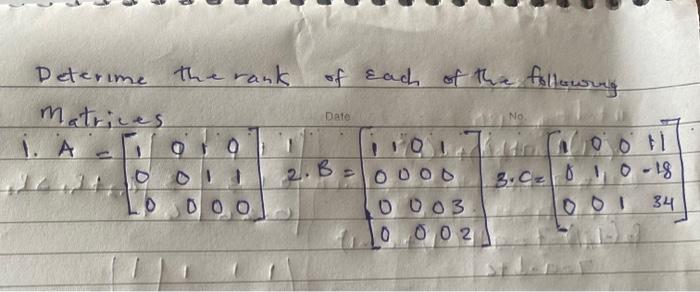 Deterime the rank of Each of the following
Matrices
Date
No
1. A = [1 0 1 0 2. B = [1 1 0 1 3. C = [1 0 0 11
0 0 1 1 0 0 0 0 0 1 0 -18
0 0 0 0] 0 0 0 3 0 0 1 34]
0 0 0 2]